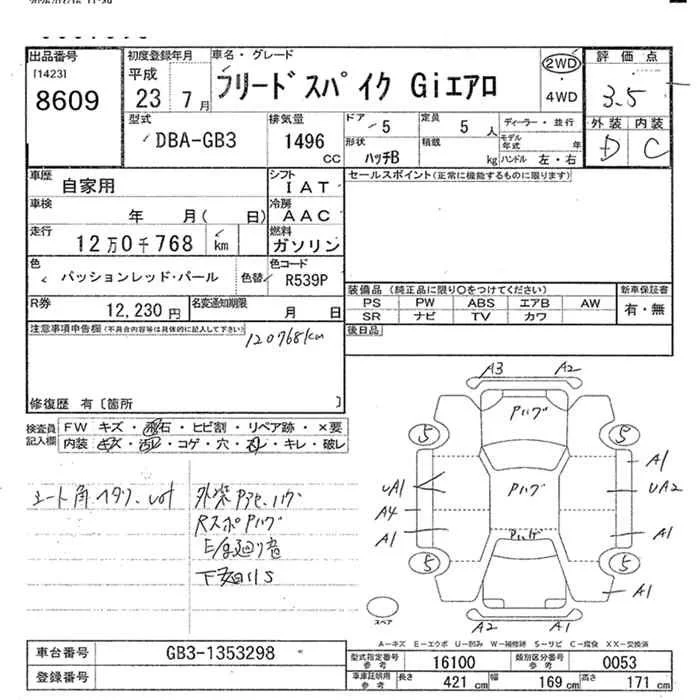 出品番号
[1423]
8609
初度登録年月
平成
23 7月
車名・グレード
フリードスパイク Giエアロ
2WD
4WD
評価点
3.5
外装 内装
D C
型式
DBA-GB3
排気量
1496 CC
ドア 5
定員 5人
形状 ハッチB
積載 kg
ディーラー・並行
モデル年式 年
ハンドル 左・右
車歴 自家用
シフト IAT
車検 年 月( 日)
冷房 AAC
走行 12万0千768 km
燃料 ガソリン
色 パッションレッド・パール
色替
色コード R539P
R券 12,230円
名変通知期限 月 日
セールスポイント(正常に機能するものに限ります)
装備品 (純正品に限り○をつけてください)
PS PW ABS エアB AW
SR ナビ TV カワ
新車保証書
有・無
後日品
注意事項申告欄(不具合内容等は具体的に記入して下さい)
120768km
修復歴 有〔箇所 〕
検査員記入欄
FW キズ・飛石・ヒビ割・リペア跡・×要
内装 キズ・汚レ・コゲ・穴・スレ・キレ・破レ
A3 A2
Pハゲ
5 5
A1
UA1 Pハゲ UA2
A4
A1 Pハゲ A1
5 5
A1
A2 A1
スペア
RスポPハゲ
E/g廻り音
下廻りS
A-キズ E-エクボ U-凹み W-補修跡 S-サビ C-腐食 XX-交換済
車台番号 GB3-1353298
登録番号
型式指定番号 参考 16100
類別区分番号 参考 0053
車庫証明用 参考 長さ 421cm 幅 169cm 高さ 171cm